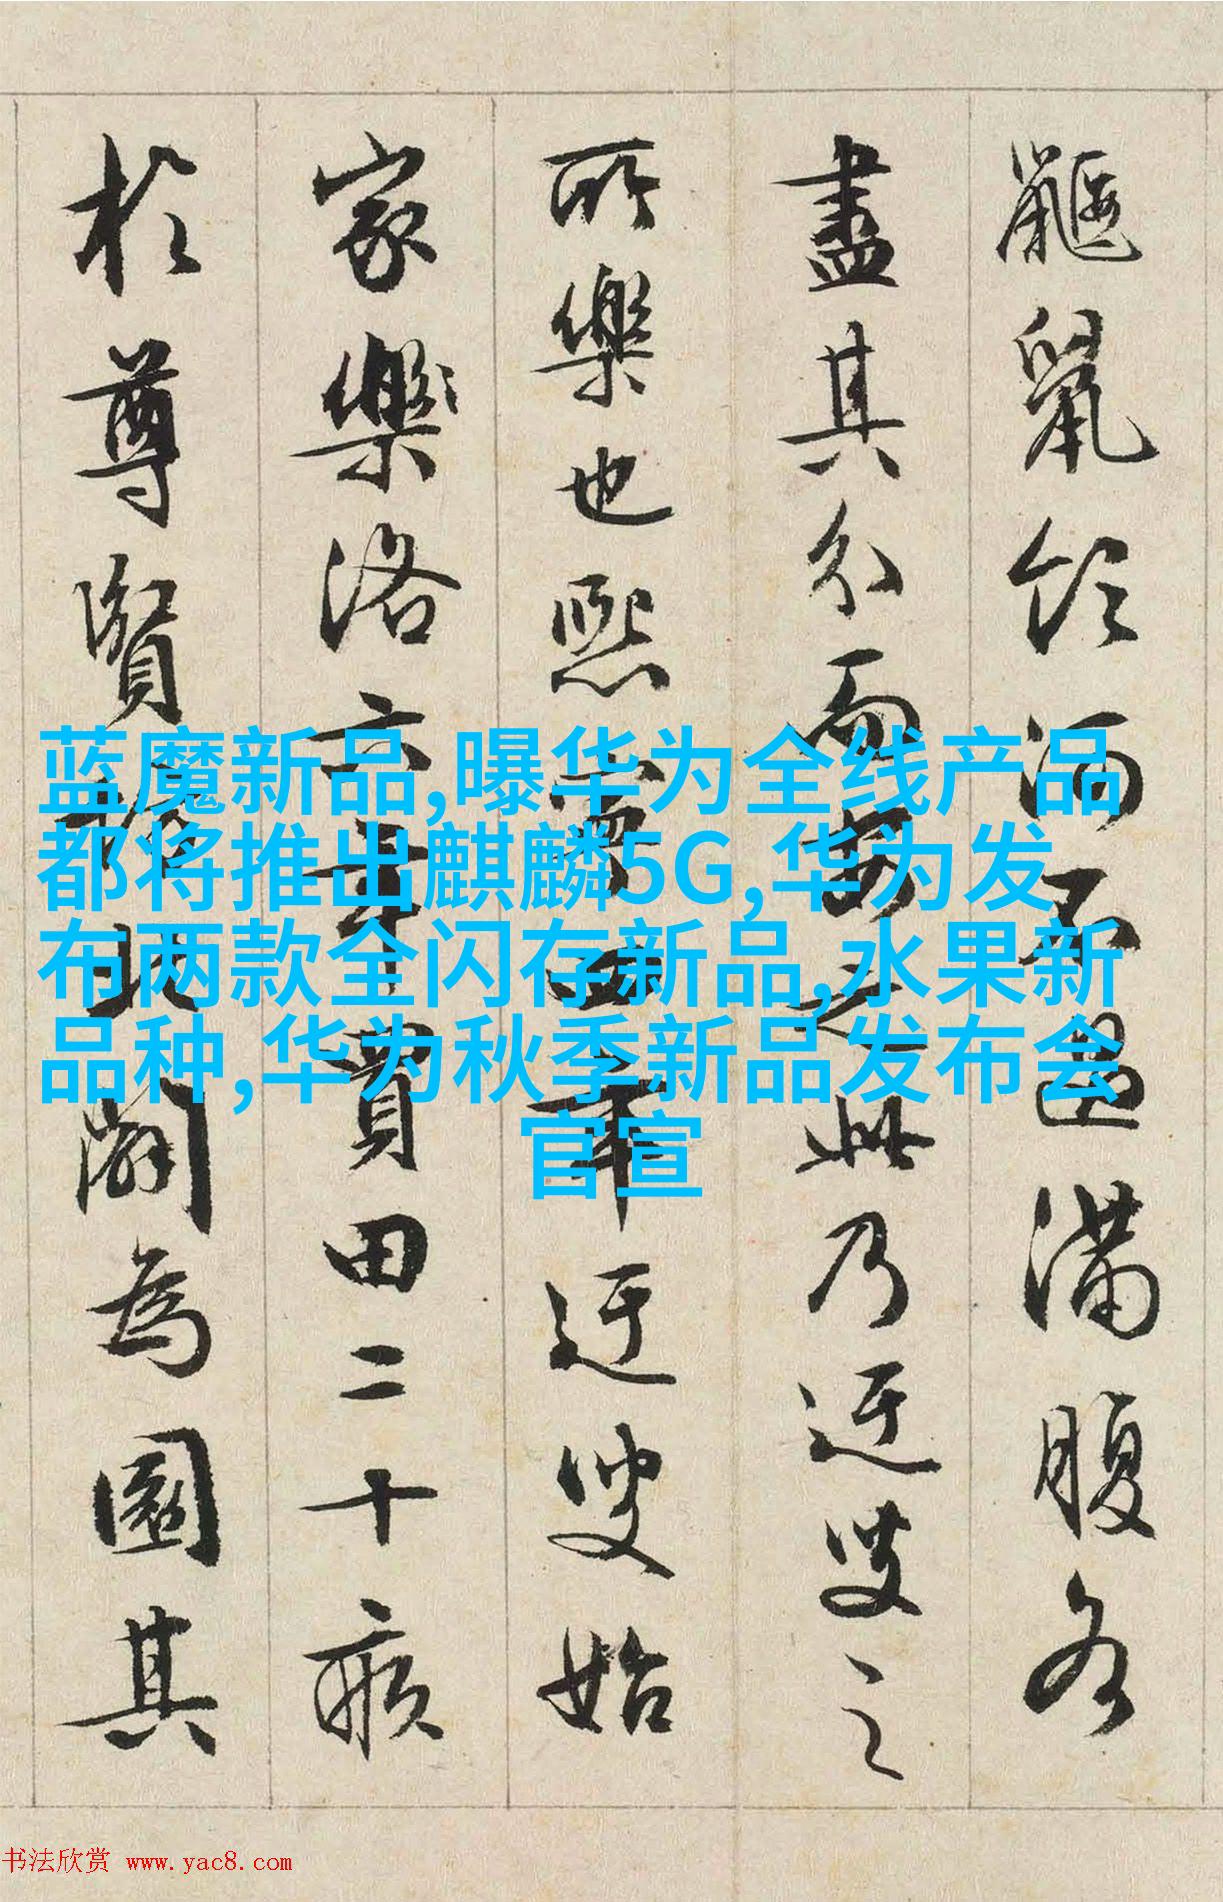 蓝魔新品,曝华为全线产品
都将推出麒麟5G,华为发
布两款全闪存新品,水果新
品种,华为秋季新品发布会
官宣
鼴鼠飲河不過滿腹各
盡其分而安之此乃迂叟之
所樂也熙寧四年迂叟始
家樂洛六年買田二十畝
於尊賢坊北闢為園其
书法欣赏 www.yac8.com